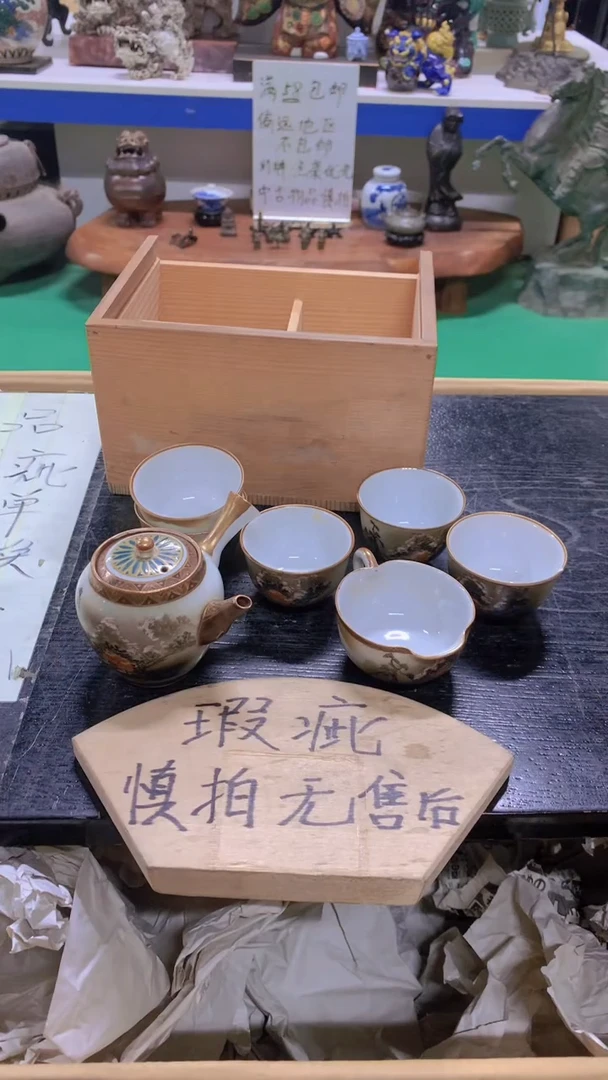 满 包邮
偏远地区
不包邮
中古物品慎拍
疵
单
瑕疵
慎拍无售后